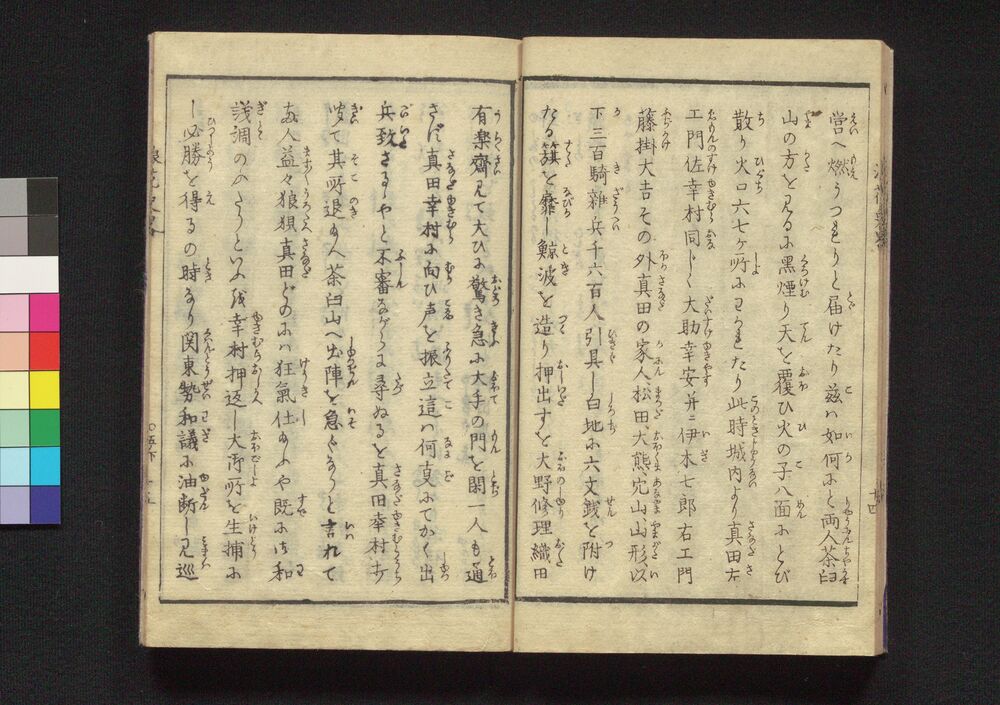 営へ燃うつれりと届けたり茲ハ如何にと両人茶臼
山の方を見るに黒煙り天を覆ひ火の子八面にとび
散り火口六七ヶ所にわかれたり此時城内より真田左
エ門佐幸村同じく大助幸安并ニ伊木七郎右エ門
藤掛大吉その外真田の家人松田、大熊穴山山形以
下三百騎雑兵千六百人引具し白地に六文銭を附け
たる籏を靡し鯨波を造り押出すを大野修理織田
有楽齋見て大ひに驚き急に大手の門を閉一人も通
さず真田幸村に向ひ声を振立這ハ何事にてかく出
兵致さるゝやと不審ながらに尋ぬるを真田幸村打
其所退れよ茶臼山へ出陣を急ぐなりと言れて
両人益々狼狽真田どのにハ狂氣仕りしや既に御和
議調のふたりといふを幸村押返し大御所を生捕に
し必勝を得るの時なり関東勢和議に油断し見巡